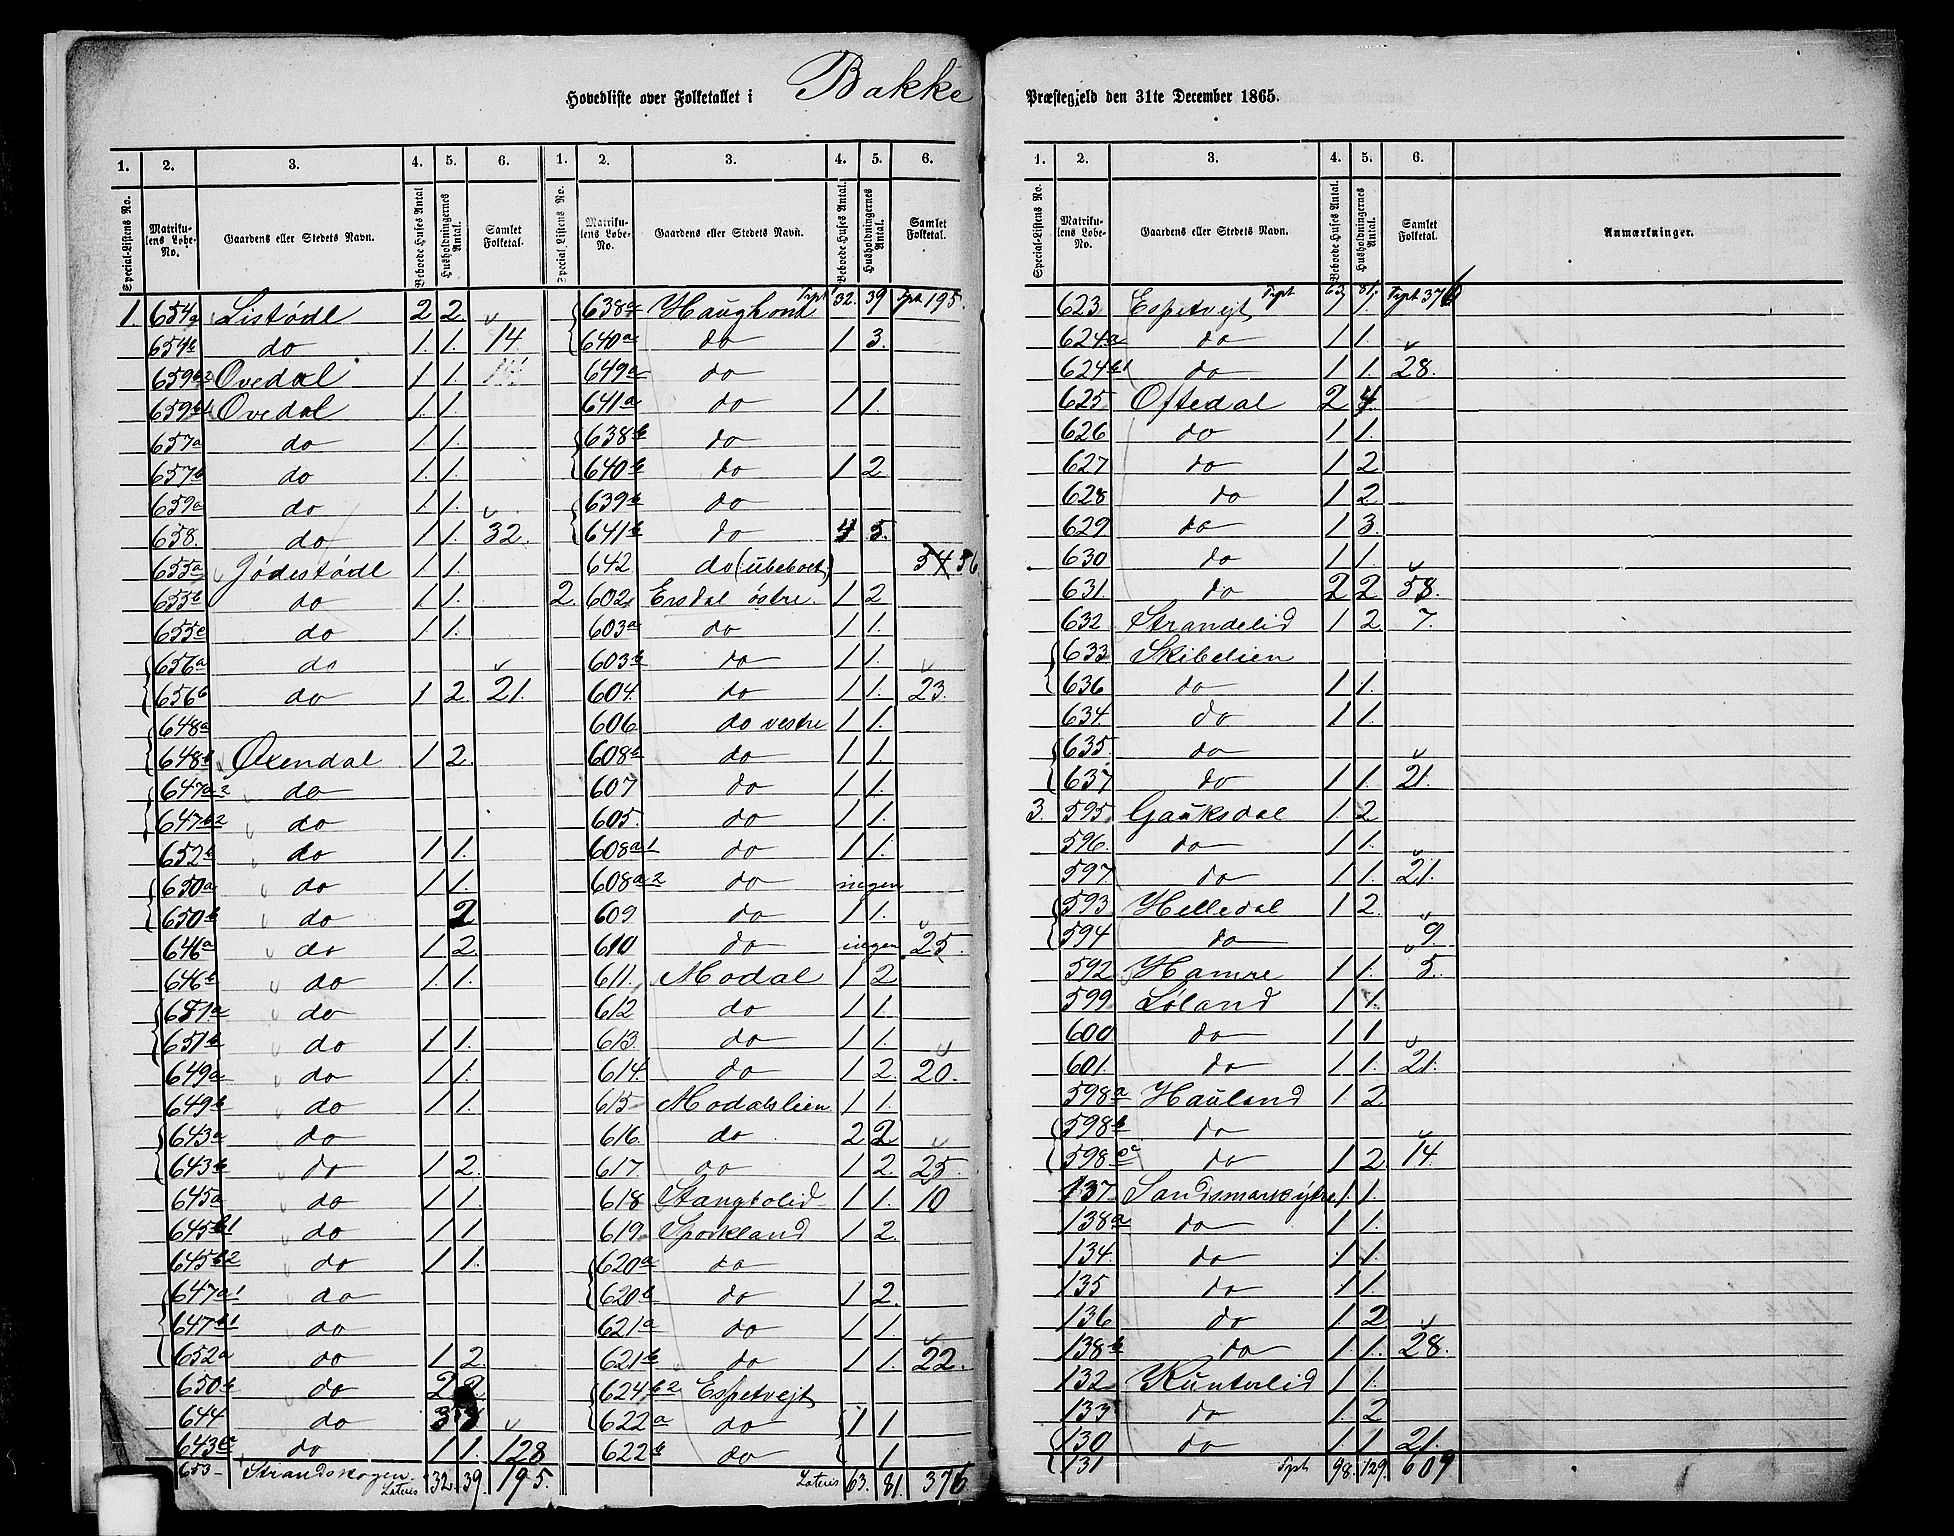 Hovedliste over Folketallet i Bakke Præstegjeld den 31te December 1865.
1. 2. 3. 4. 5. 6. 1. 2. 3. 4. 5. 6.
Special-Listens No. Matriku-lens Løbe-No. Gaardens eller Stedets Navn. Beboede Huses Antal Husholdningernes Antal. Samlet Folketal. Special Listens No. Matriku-lens Løbe-No. Gaardens eller Stedets Navn. Beboede Huses Antal. Husholdningernes Antal. Samlet Folketal.
1. 654a Listødl 2 2.
654b do 1. 1. 14
659b2 Ovedal 1 1.
659b1 Ovedal 1. 1.
657a do 1 1.
657b do 1 1.
659a do 1 1.
658. do 1 1. 32.
655a Jødestødl 1 1.
655b do 1 1.
655c do 1 1.
656a do
656b do 1 2. 21.
648a
648b Øxendal 1 2.
647a2 do
647b2 do
652b do 1 1.
650a do 1 1.
650b do 2
646a do 1 2.
646b do 1. 1.
651a do
651b do 1 1.
649a do 1 1.
649b do 1 1.
643a do
643b do 1 2.
645a do 1 1.
645b1 do 1 1
645b2 do 1 1.
647a1 do
647b1 do
652a do 1 2
650b do 2 2.
644 do 3 3
643c do 1 1. 128
653 Strandskogen.
Lateris 32. 39. 195.
638a Haughom Tpt 32. 39 Tpt 195.
640a do 1 3.
649a do
641a do 1 1.
638b do
640b do 1 2
639a do
641b do 4 5.
642 do (ubeboet) 54 56
2. 602. Ersdal østre. 1 2
603a do 1 1.
603b do 1 1.
604. do 1 1. 23.
606 do vestre 1 1.
608b do 1 1
607 do 1 1.
605. do 1 1.
608a1 do 1 1.
608a2 do ingen
609 do 1 1.
610 do ingen 25.
611. Modal 1 2
612 do 1 1.
613. do 1 1.
614. do 1 2. 20.
615 Modalslien 1 1.
616. do 2 2.
617. do 1 2. 25.
618 Stangbolid 1 1. 10
619. Sporkland 1 2.
620a do
620b do 1 2.
621a do 1 1.
621b do 1 1. 22.
624b2 Espetvejt
622a do 1 1
622b do 1
Lateris 63. 81. 376
1. 2. 3. 4. 5. 6.
Special-Listens No. Matriku-lens Løbe-No. Gaardens eller Stedets Navn. Beboede Huses Antal. Husholdningernes Antal. Samlet Folketal. Anmærkninger.
Tpt 63. 81. Tpt 376
623 Espetvejt 1 1.
624a do 1 1.
624b1 do 1 1. 28.
625 Oftedal 2 4.
626 do 1 1.
627 do 1 2
628 do 1 2
629 do 1 3.
630 do 1 1.
631 do 2 2 58.
632 Strandelid 1 2 7.
633 Skibelien
636 do 1 1.
634. do 1 1.
635. do
637 do 1 1. 21.
3. 595. Gauksdal 1 2
596. do 1 1.
597. do 1 1. 21.
593 Helledal 1 2.
594 do 9.
592 Hamre 1 1. 5.
599 Løland 1 1.
600 do 1 1
601. do 1 1. 21.
598a Hauland 1 2
598b do
598c do 1 2 14.
137 Sandsmark ytre 1. 1.
138a do 1 1.
134. do 1. 1.
135 do 1 1.
136 do 1 2
138b do 1. 1. 28.
132 Kunterlid 1 1.
133 do 1. 2
130 do 1 1 21.
131 Tpt 98. 129. 609